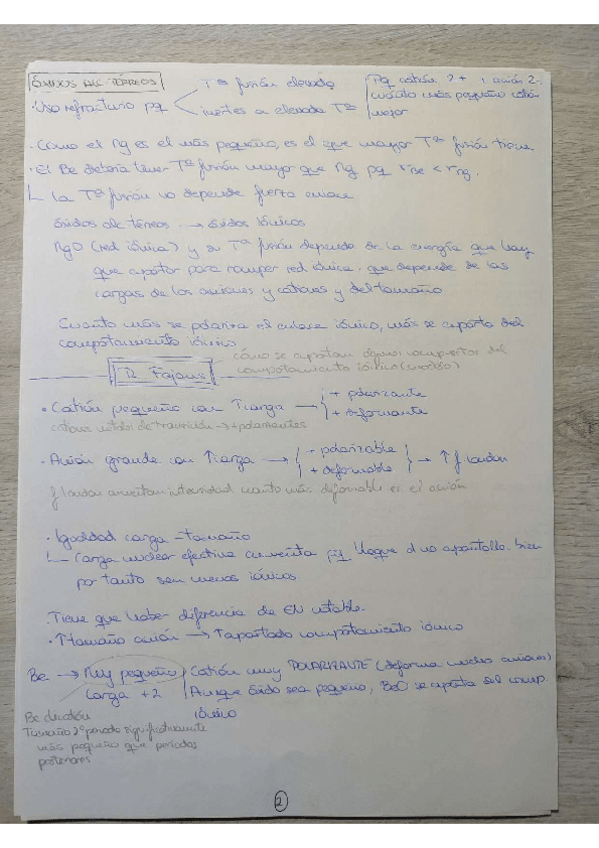 ÓXIDOS ALC TÉRREOS
Tª fusión elevada
Pq catión 2+ y anión 2-
cuánto más pequeño catión
mejor
· Uso refractario pq
inertes a elevada Tª
· Como el Mg es el más pequeño, es el que mayor Tª fusión tiene
· El Be debería tener Tª fusión mayor que Mg pq rBe < rMg.
La Tª fusión no depende fuerza enlace
Óxidos alc térreos → óxidos iónicos
MgO (red iónica) y su Tª fusión depende de la energía que hay
que aportar para romper red iónica. que depende de las
cargas de los aniones y cationes y del tamaño
Cuanto más se polariza el enlace iónico, más se aparta del
comportamiento iónico
cómo se apartan algunos compuestos del
comportamiento iónico
R Fajans
· Catión pequeño con ↑carga → + polarizante
+ deformante
cationes metales de transición → + polarizantes
· Anión grande con ↑carga → + polarizable
+ deformable → ↑ f london
f london aumentan intensidad cuanto más deformable es el anión
· Igualdad carga - tamaño
Carga nuclear efectiva aumenta pq bloque d no apantalla bien
por tanto son menos iónicos
· Tiene que haber diferencia de EN notable.
· ↑tamaño anión → ↑apartado comportamiento iónico
Be → Muy pequeño
carga +2
Catión muy POLARIZANTE (deforma mucho aniones)
Aunque óxido sea pequeño, BeO se aparta del comp.
iónico
Be
Tamaño 2º periodo significativamente
más pequeño que periodos
posteriores
2